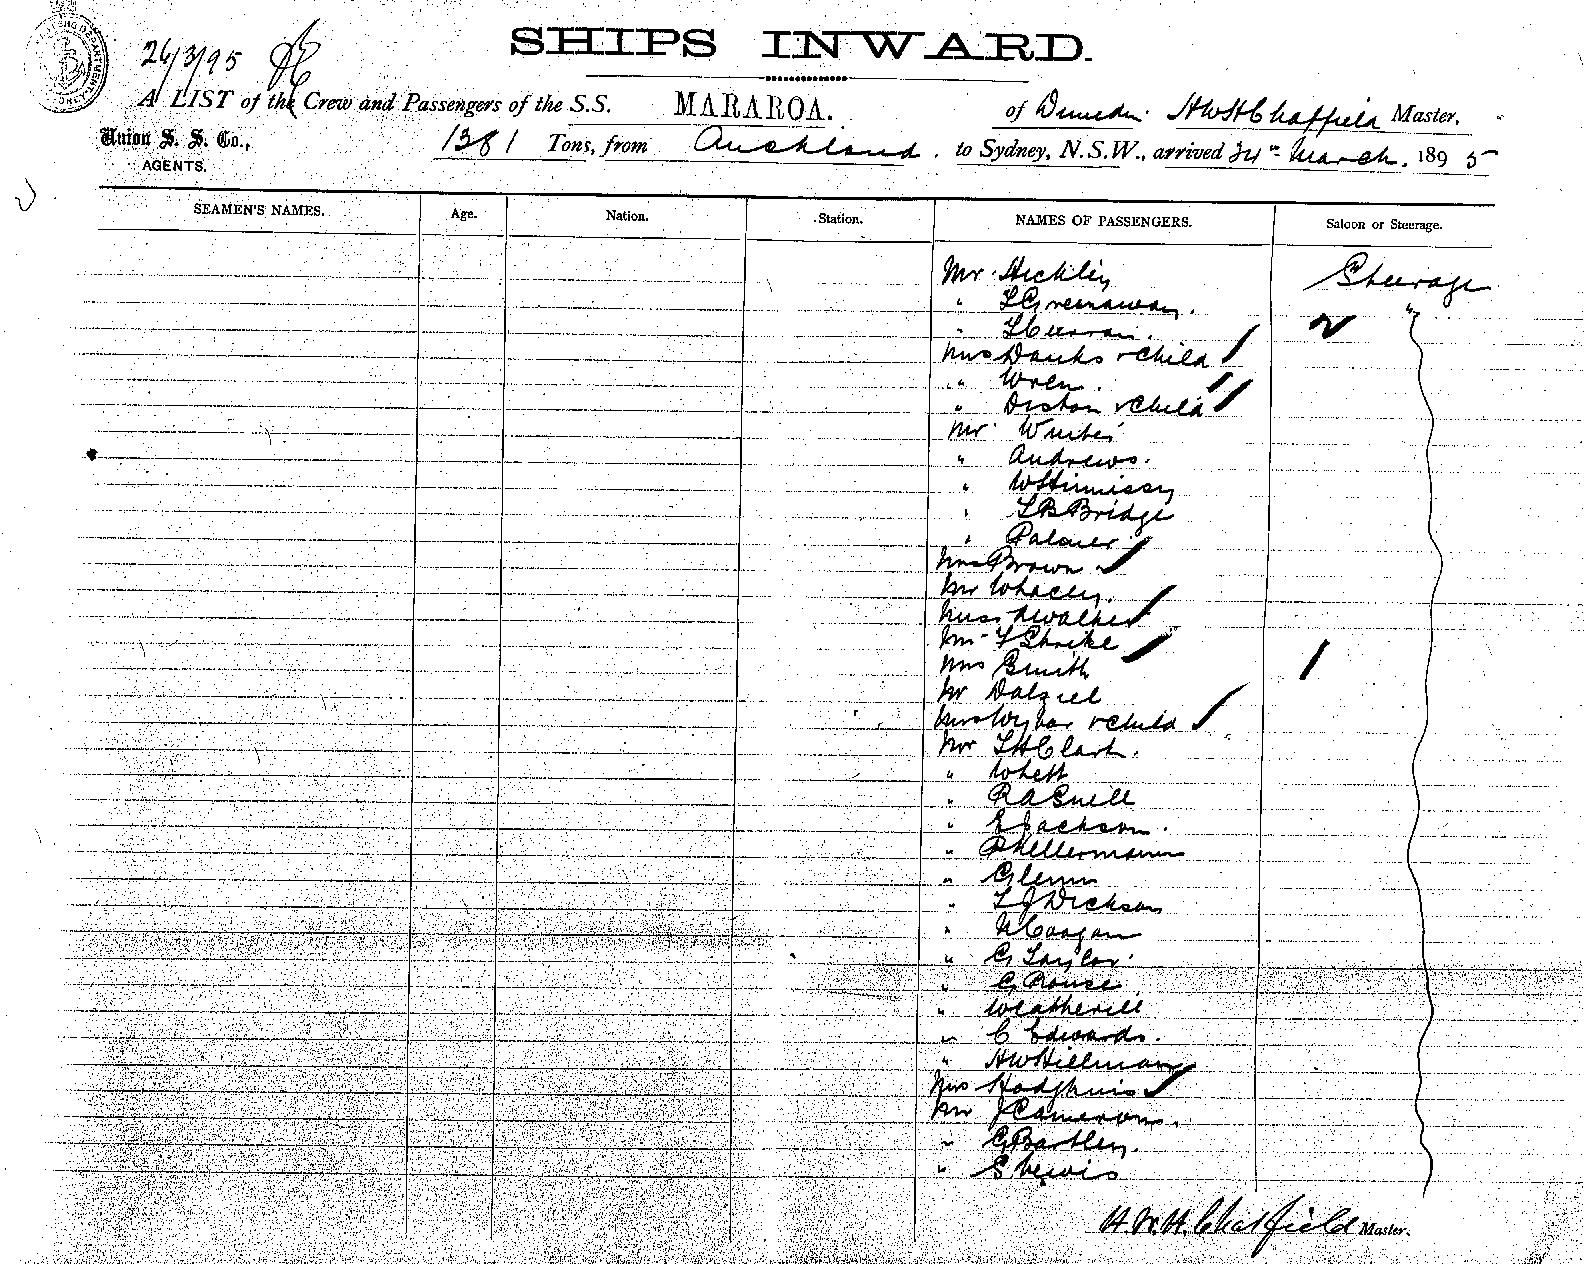 SHIPS INWARD.
26/3/95
A LIST of the Crew and Passengers of the S.S. MARAROA. of Dunedin. H W H Chatfield Master,
Union S. S. Co.,
AGENTS.
1381 Tons, from Auckland. to Sydney, N.S.W., arrived 24th March. 1895
SEAMEN'S NAMES. Age. Nation. Station. NAMES OF PASSENGERS. Saloon or Steerage.
Mr. Hickley Steerage
" F Greenaway. "
" F Curran.
Mrs Danks & Child
" Wren.
" Diston & Child
Mr
" Andrews.
" W Hinnissy
" F B Bridge
" Palmer
Mrs Brown
Mr Whaley.
Miss A Walker
Mr F Shrike
Mrs Smith
Mr Dalziel
Mrs Wybar & Child
Mr F H Clark.
" Whett
" R A Snell
" E Jackson.
" P Kellermann
" Glenn
" F J Dickson
" M Coogan
" G Taylor
" G Rouse
" Weatherill
" C Edwards.
" H W Hillman
Mrs
Mr J Camerons.
" G Bartley.
" S Lewis
H. W. H. Chatfield Master.